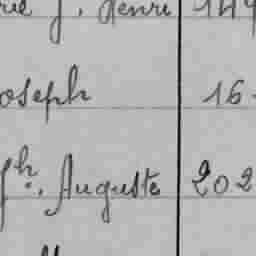 J. Henri 144
oseph 16
ph. Auguste 202